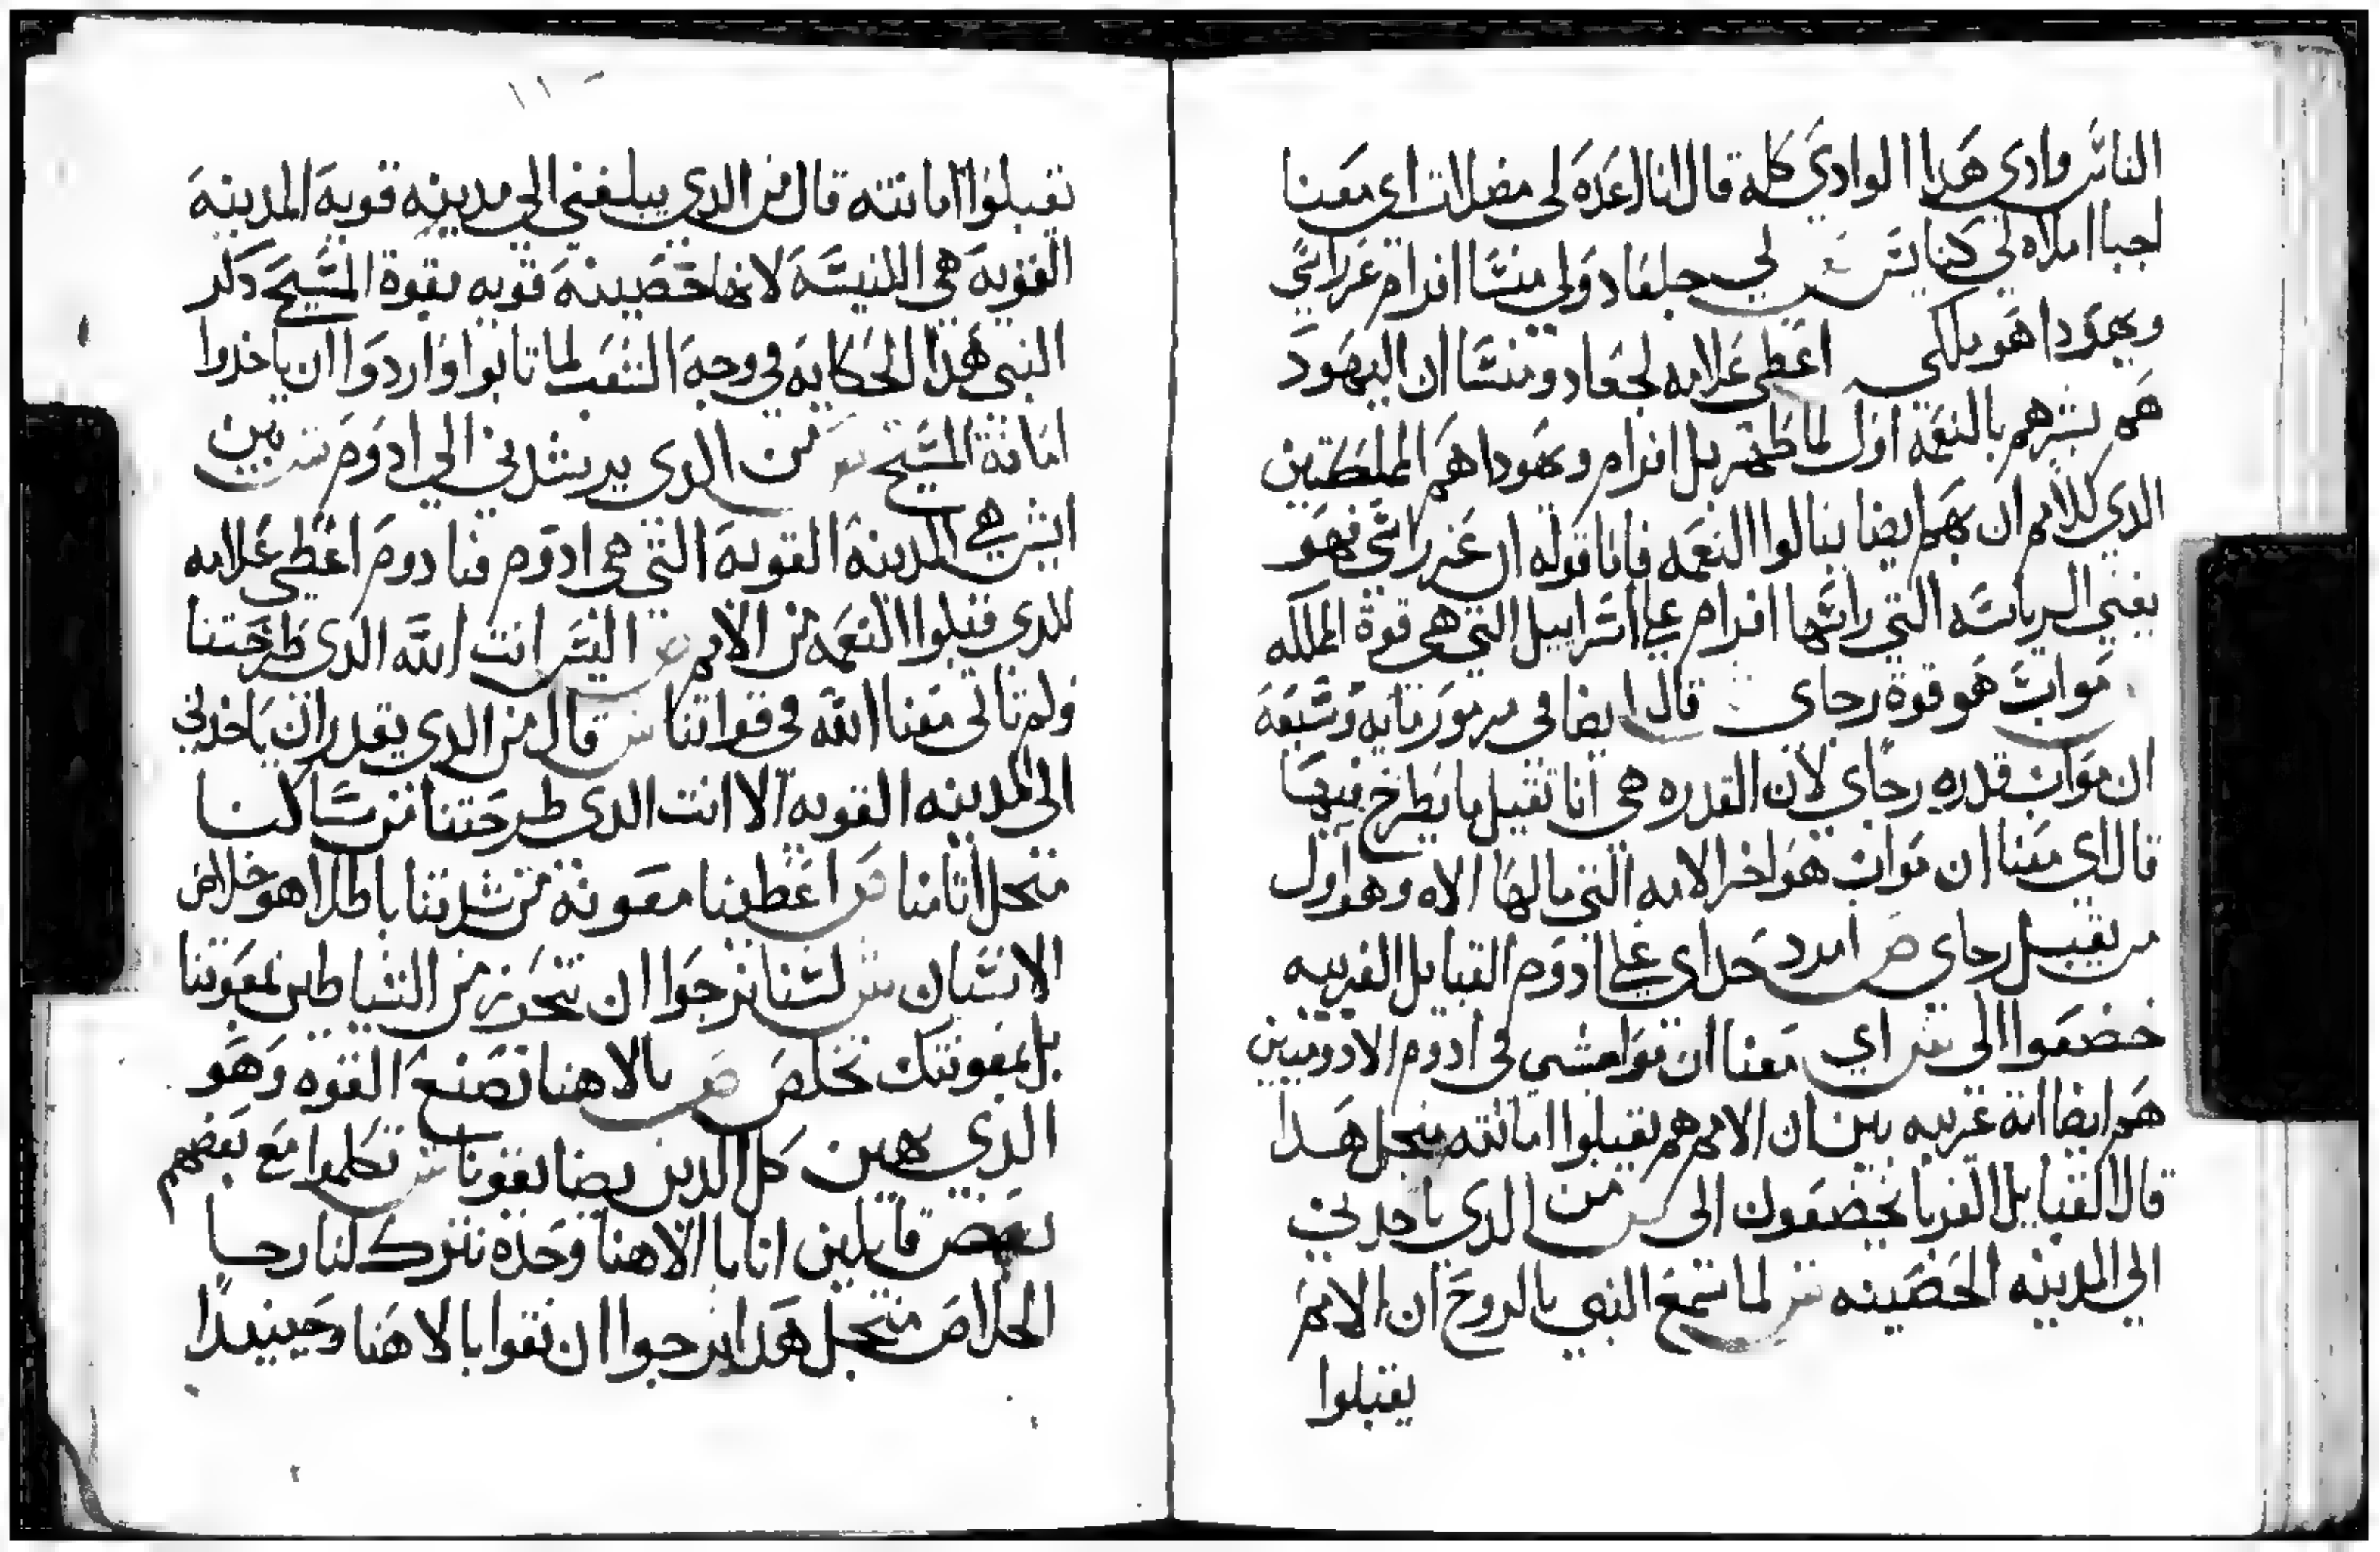 الناس وادي هدا الوادي كله قال انا اعده لي مضلات اي معنا
اجبا املاه لي كنايس لي جلعاد ولي منسا افرام عز راسي
ويهودا هو ملكي اعطي علامه لجعاد ومنسا ان اليهود
هم بشرهم بالنعمه اول لما ظهر بل افرام ويهودا هم المملكتين
الدي للامم ان بهم ايضا ينالوا النعمه فاما قوله ان عز راسي فهو
يعني الرياسه التي راسها افرام علي اسراييل التي هي قوة المملكه
مواب هو قوة رجاي قال ايضا في مزمور مايه وسبعه
ان مواب قدره رجاي لان القدره هي انا تقبل ما يطرح فيها
قال اي معنا ان مواب هو اخر الامه التي مالها الاه وهو اول
من يقبل رجاي ص امدد حداي علي ادوم القبايل الغريبه
خضعوا الي تفس اي معنا ان مواعشي في ادوم الادوميين
هم ايضا امة غريبه بين ان الامم هم يقبلوا امانته منجل هدا
قال القبايل الغربا يخضعون الي من الدي ياخدني
الي المدينه الحصينه تفس لما سمع النبي بالروح ان الامم
يقبلوا
١١
يقبلوا امانته قال من الدي يبلغني الي مدينه قوية المدينة
القوية هي الكنيسة لانها حصينة قويه بقوة المسيح دكر
النبي هدا الحكايه في وجه الشعب لما تابوا وارادوا ان ياخدوا
امانة المسيح ص من الدي يرشدني الي ادوم تفس بين
ايش هي المدينة القوية التي هي ادوم فنادوم اعطي علامه
للدي قبلوا النعمه من الامم ص اليس انت الله الدي طرحتنا
ولم تاتي معنا الله في قواتنا تفس قال من الدي يقدر ان ياخدني
الي المدينه القويه الا انت الدي طرحتنا من مساكننا
منجل اتامنا ص اعطينا معونة من شدتنا باطلا هو خلاص
الانسان تفس لسنا نرجوا ان نتحرز من الشياطين بمعونتنا
بل بمعونتك نخلص ص بالاهنا نصنع القوه وهو
الدي يهين كل الدين يضايقونا تفس تكلموا مع بعضهم
بعض قايلين انا بالاهنا وحده نترك لنا رجا
الخلاص منجل هدا نرجوا ان نقوا بالاهنا وحينيدا